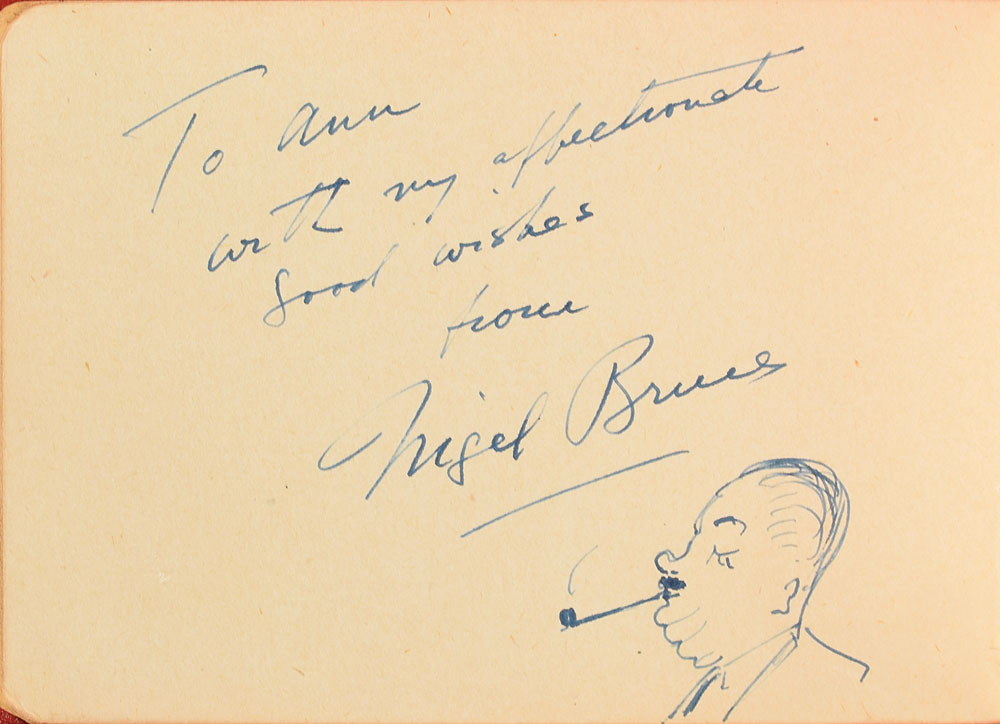 To Ann
with my affectionate
good wishes
from
Nigel Bruce